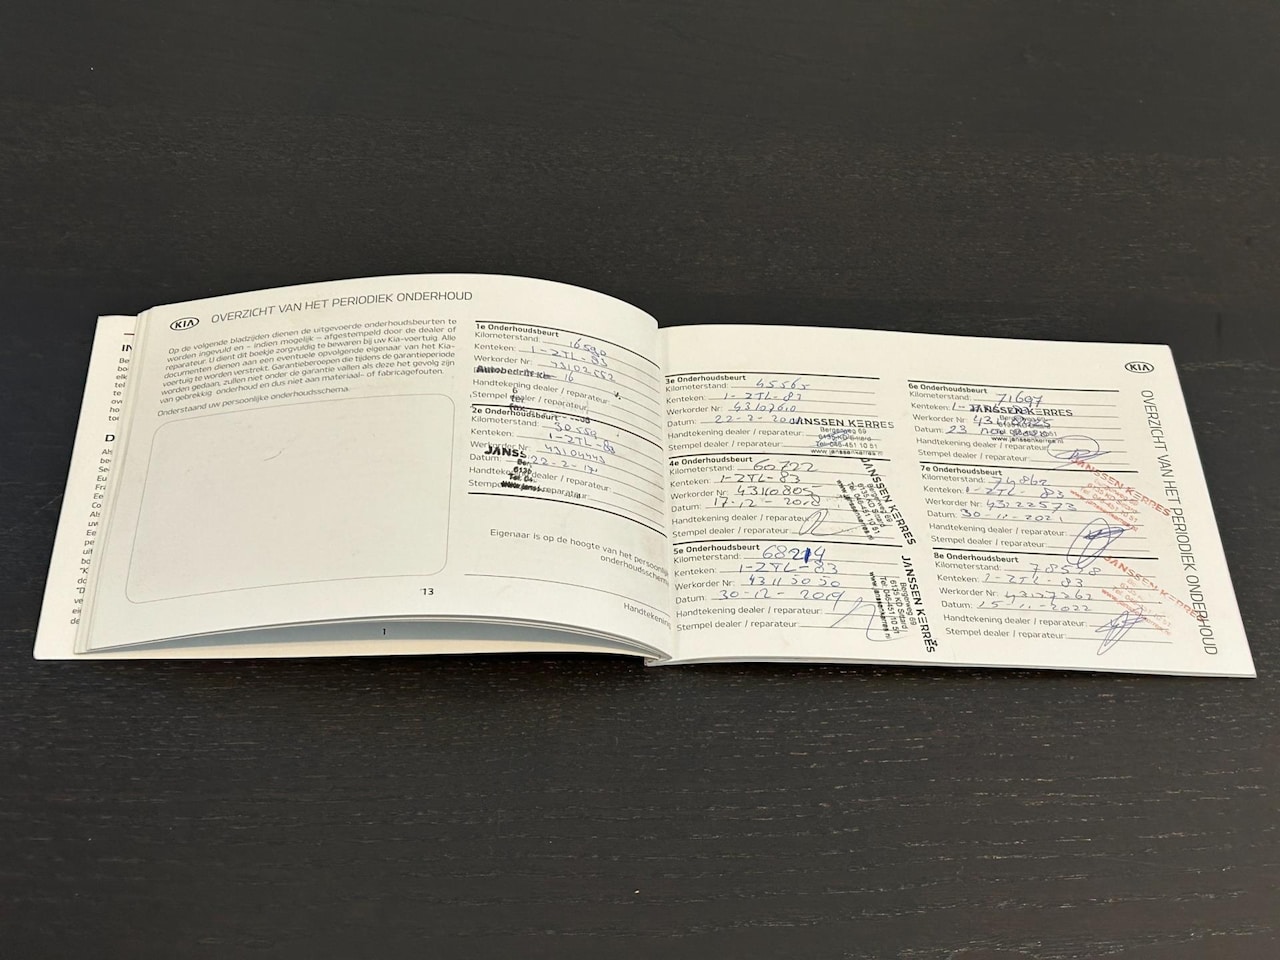 KIA
OVERZICHT VAN HET PERIODIEK ONDERHOUD
Op de volgende bladzijden dienen de uitgevoerde onderhoudsbeurten te
worden ingevuld en – indien mogelijk – afgestempeld door de dealer of
reparateur. U dient dit boekje zorgvuldig te bewaren bij uw Kia-voertuig. Alle
documenten dienen aan een eventuele opvolgende eigenaar van het Kia-
voertuig te worden verstrekt. Garantieberoepen die tijdens de garantieperiode
worden gedaan, zullen niet onder de garantie vallen als deze het gevolg zijn
van gebrekkig onderhoud en dus niet aan materiaal- of fabricagefouten.
Onderstaand uw persoonlijke onderhoudsschema:
13
1
1e Onderhoudsbeurt
Kilometerstand: 16590
Kenteken: 1-ZTL-83
Werkorder Nr: 43102552
Autobedrijf
Handtekening dealer / reparateur:
Stempel dealer / reparateur:
2e Onderhoudsbeurt
Kilometerstand:
Kenteken: 1-ZTL-83
Werkorder Nr: 43104443
Datum: 22-2-17
Handtekening dealer / reparateur:
Stempel dealer / reparateur:
Eigenaar is op de hoogte van het persoonlijk
onderhoudsschema
Handtekening
3e Onderhoudsbeurt
Kilometerstand: 45565
Kenteken: 1-ZTL-83
Werkorder Nr: 43107610
Datum: 22-2-
Handtekening dealer / reparateur:
Stempel dealer / reparateur:
JANSSEN KERRES
Bergerweg 69
6135 KD Sittard
Tel. 046-451 10 51
www.janssenkerres.nl
4e Onderhoudsbeurt
Kilometerstand: 60722
Kenteken: 1-ZTL-83
Werkorder Nr: 43110805
Datum: 17-12-2018
Handtekening dealer / reparateur:
Stempel dealer / reparateur:
JANSSEN KERRES
Bergerweg 69
6135 KD Sittard
Tel. 046-451 10 51
www.janssenkerres.nl
5e Onderhoudsbeurt
Kilometerstand: 68214
Kenteken: 1-ZTL-83
Werkorder Nr: 43115050
Datum: 30-12-2019
Handtekening dealer / reparateur:
Stempel dealer / reparateur:
JANSSEN KERRES
Bergerweg 69
6135 KD Sittard
Tel. 046-451 10 51
www.janssenkerres.nl
KIA
OVERZICHT VAN HET PERIODIEK ONDERHOUD
6e Onderhoudsbeurt
Kilometerstand: 71697
Kenteken:
Werkorder Nr:
Datum: 23
Handtekening dealer / reparateur:
Stempel dealer / reparateur:
JANSSEN KERRES
www.janssenkerres.nl
7e Onderhoudsbeurt
Kilometerstand: 74862
Kenteken: 1-ZTL-83
Werkorder Nr: 43222573
Datum: 30-11-2021
Handtekening dealer / reparateur:
Stempel dealer / reparateur:
JANSSEN KERRES
8e Onderhoudsbeurt
Kilometerstand:
Kenteken: 1-ZTL-83
Werkorder Nr: 43227262
Datum: 15-11-2022
Handtekening dealer / reparateur:
Stempel dealer / reparateur:
JANSSEN KERRES